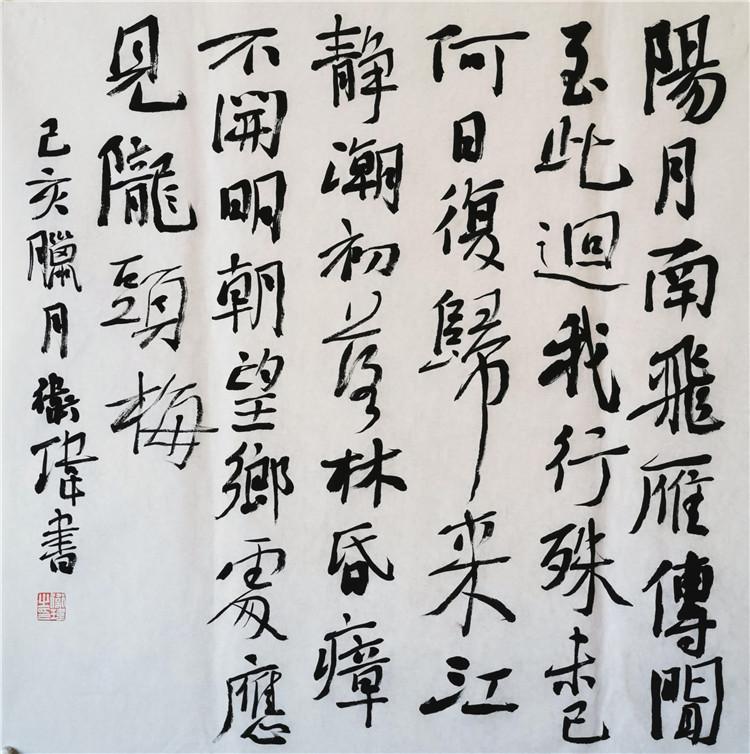 陽月南飛雁傳聞
至此迴我行殊未已
何日復歸来江
静潮初落林昏瘴
不開明朝望鄉處應
見隴頭梅
己亥臘月衛偉書